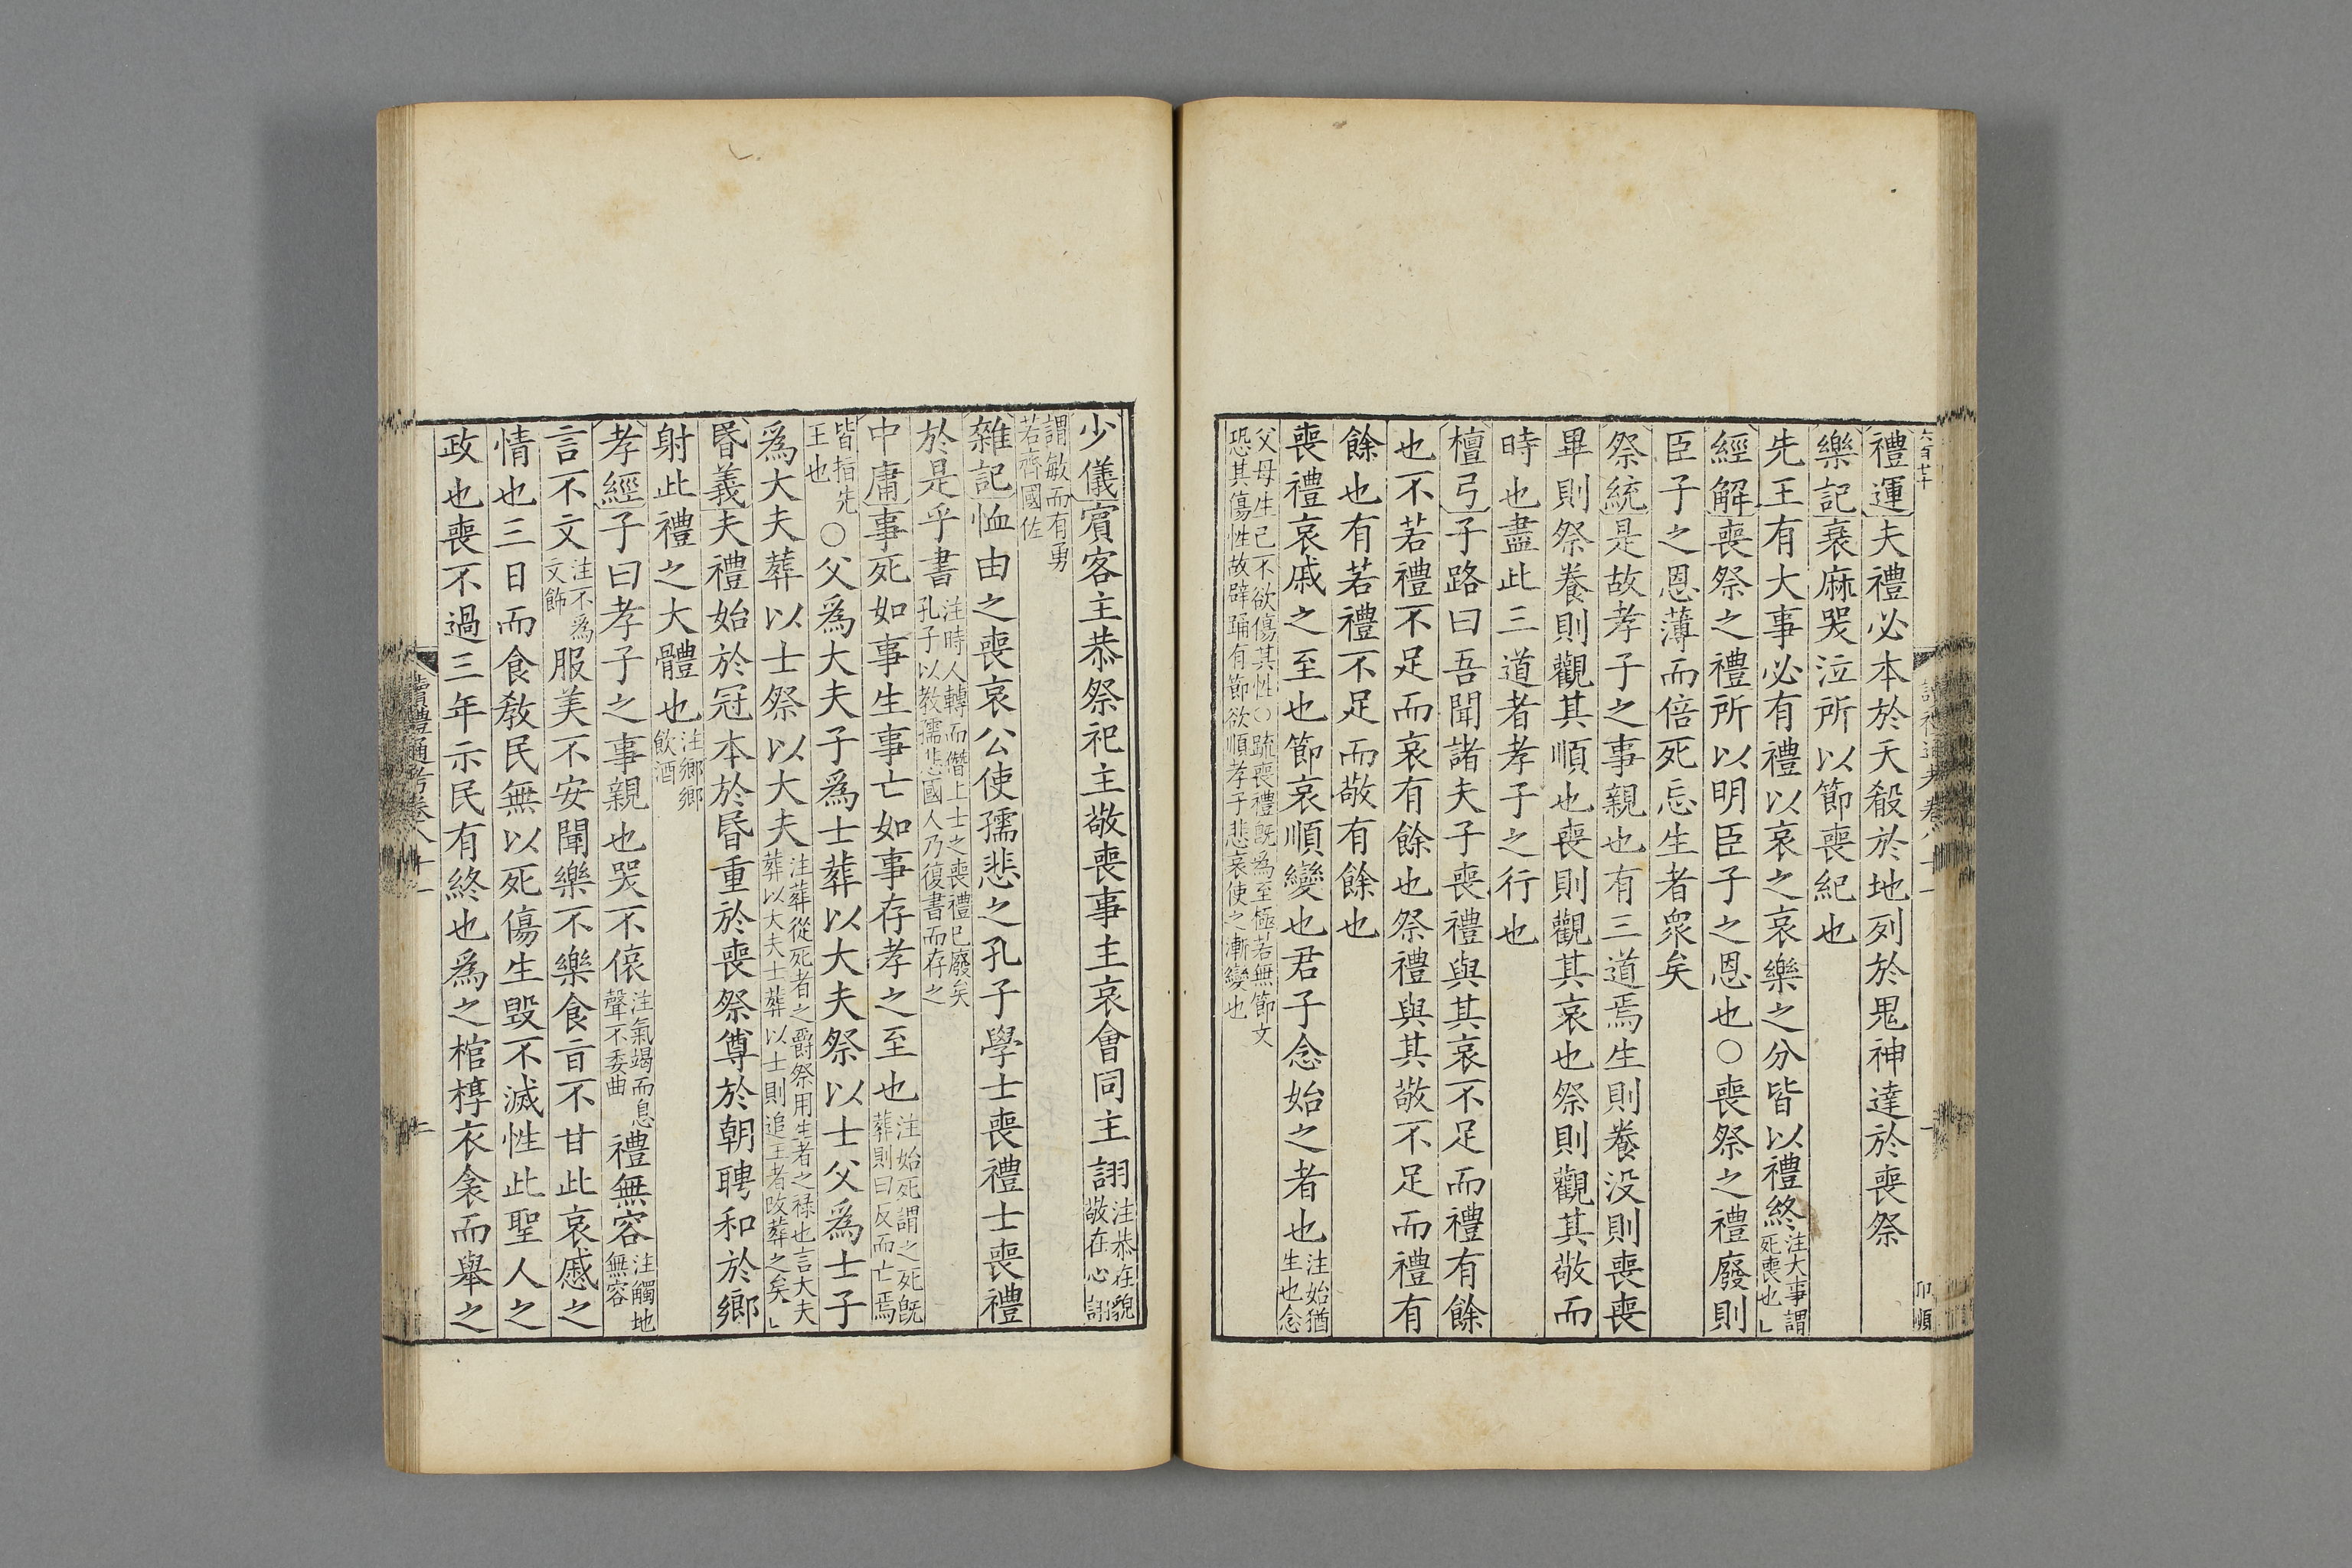 禮運夫禮必本於天殽於地列於鬼神達於喪祭
樂記衰麻哭泣所以節喪紀也
先王有大事必有禮以哀之哀樂之分皆以禮終注大事謂死喪也
經解喪祭之禮所以明臣子之恩也○喪祭之禮廢則
臣子之恩薄而倍死忘生者眾矣
祭統是故孝子之事親也有三道焉生則養没則喪喪
畢則祭養則觀其順也喪則觀其哀也祭則觀其敬而
時也盡此三道者孝子之行也
檀弓子路曰吾聞諸夫子喪禮與其哀不足而禮有餘
也不若禮不足而哀有餘也祭禮與其敬不足而禮有
餘也不若禮不足而敬有餘也
喪禮哀戚之至也節哀順變也君子念始之者也注始猶生也念
父母生己不欲傷其性○疏喪禮既為至極若無節文
恐其傷性故辟踊有節欲順孝子悲哀使之漸變也
少儀賓客主恭祭祀主敬喪事主哀會同主詡注恭在貌敬在心詡
謂敏而有勇
若齊國佐
雜記恤由之喪哀公使孺悲之孔子學士喪禮士喪禮
於是乎書注時人轉而僭上士之喪禮已廢矣孔子以教孺悲國人乃復書而存之
中庸事死如事生事亡如事存孝之至也注始死謂之死既葬則曰反而亡焉
皆指先王也○父爲大夫子爲士葬以大夫祭以士父爲士子
爲大夫葬以士祭以大夫注葬從死者之爵祭用生者之禄也言大夫葬以大夫士葬以士則追王者改葬之矣
昏義夫禮始於冠本於昏重於喪祭尊於朝聘和於鄉
射此禮之大體也注鄉鄉飲酒
孝經子曰孝子之事親也哭不偯注氣竭而息聲不委曲禮無容注觸地無容
言不文注不爲文飾服美不安聞樂不樂食旨不甘此哀慼之
情也三日而食教民無以死傷生毀不滅性此聖人之
政也喪不過三年示民有終也爲之棺椁衣衾而舉之
讀禮通考卷八十一
二